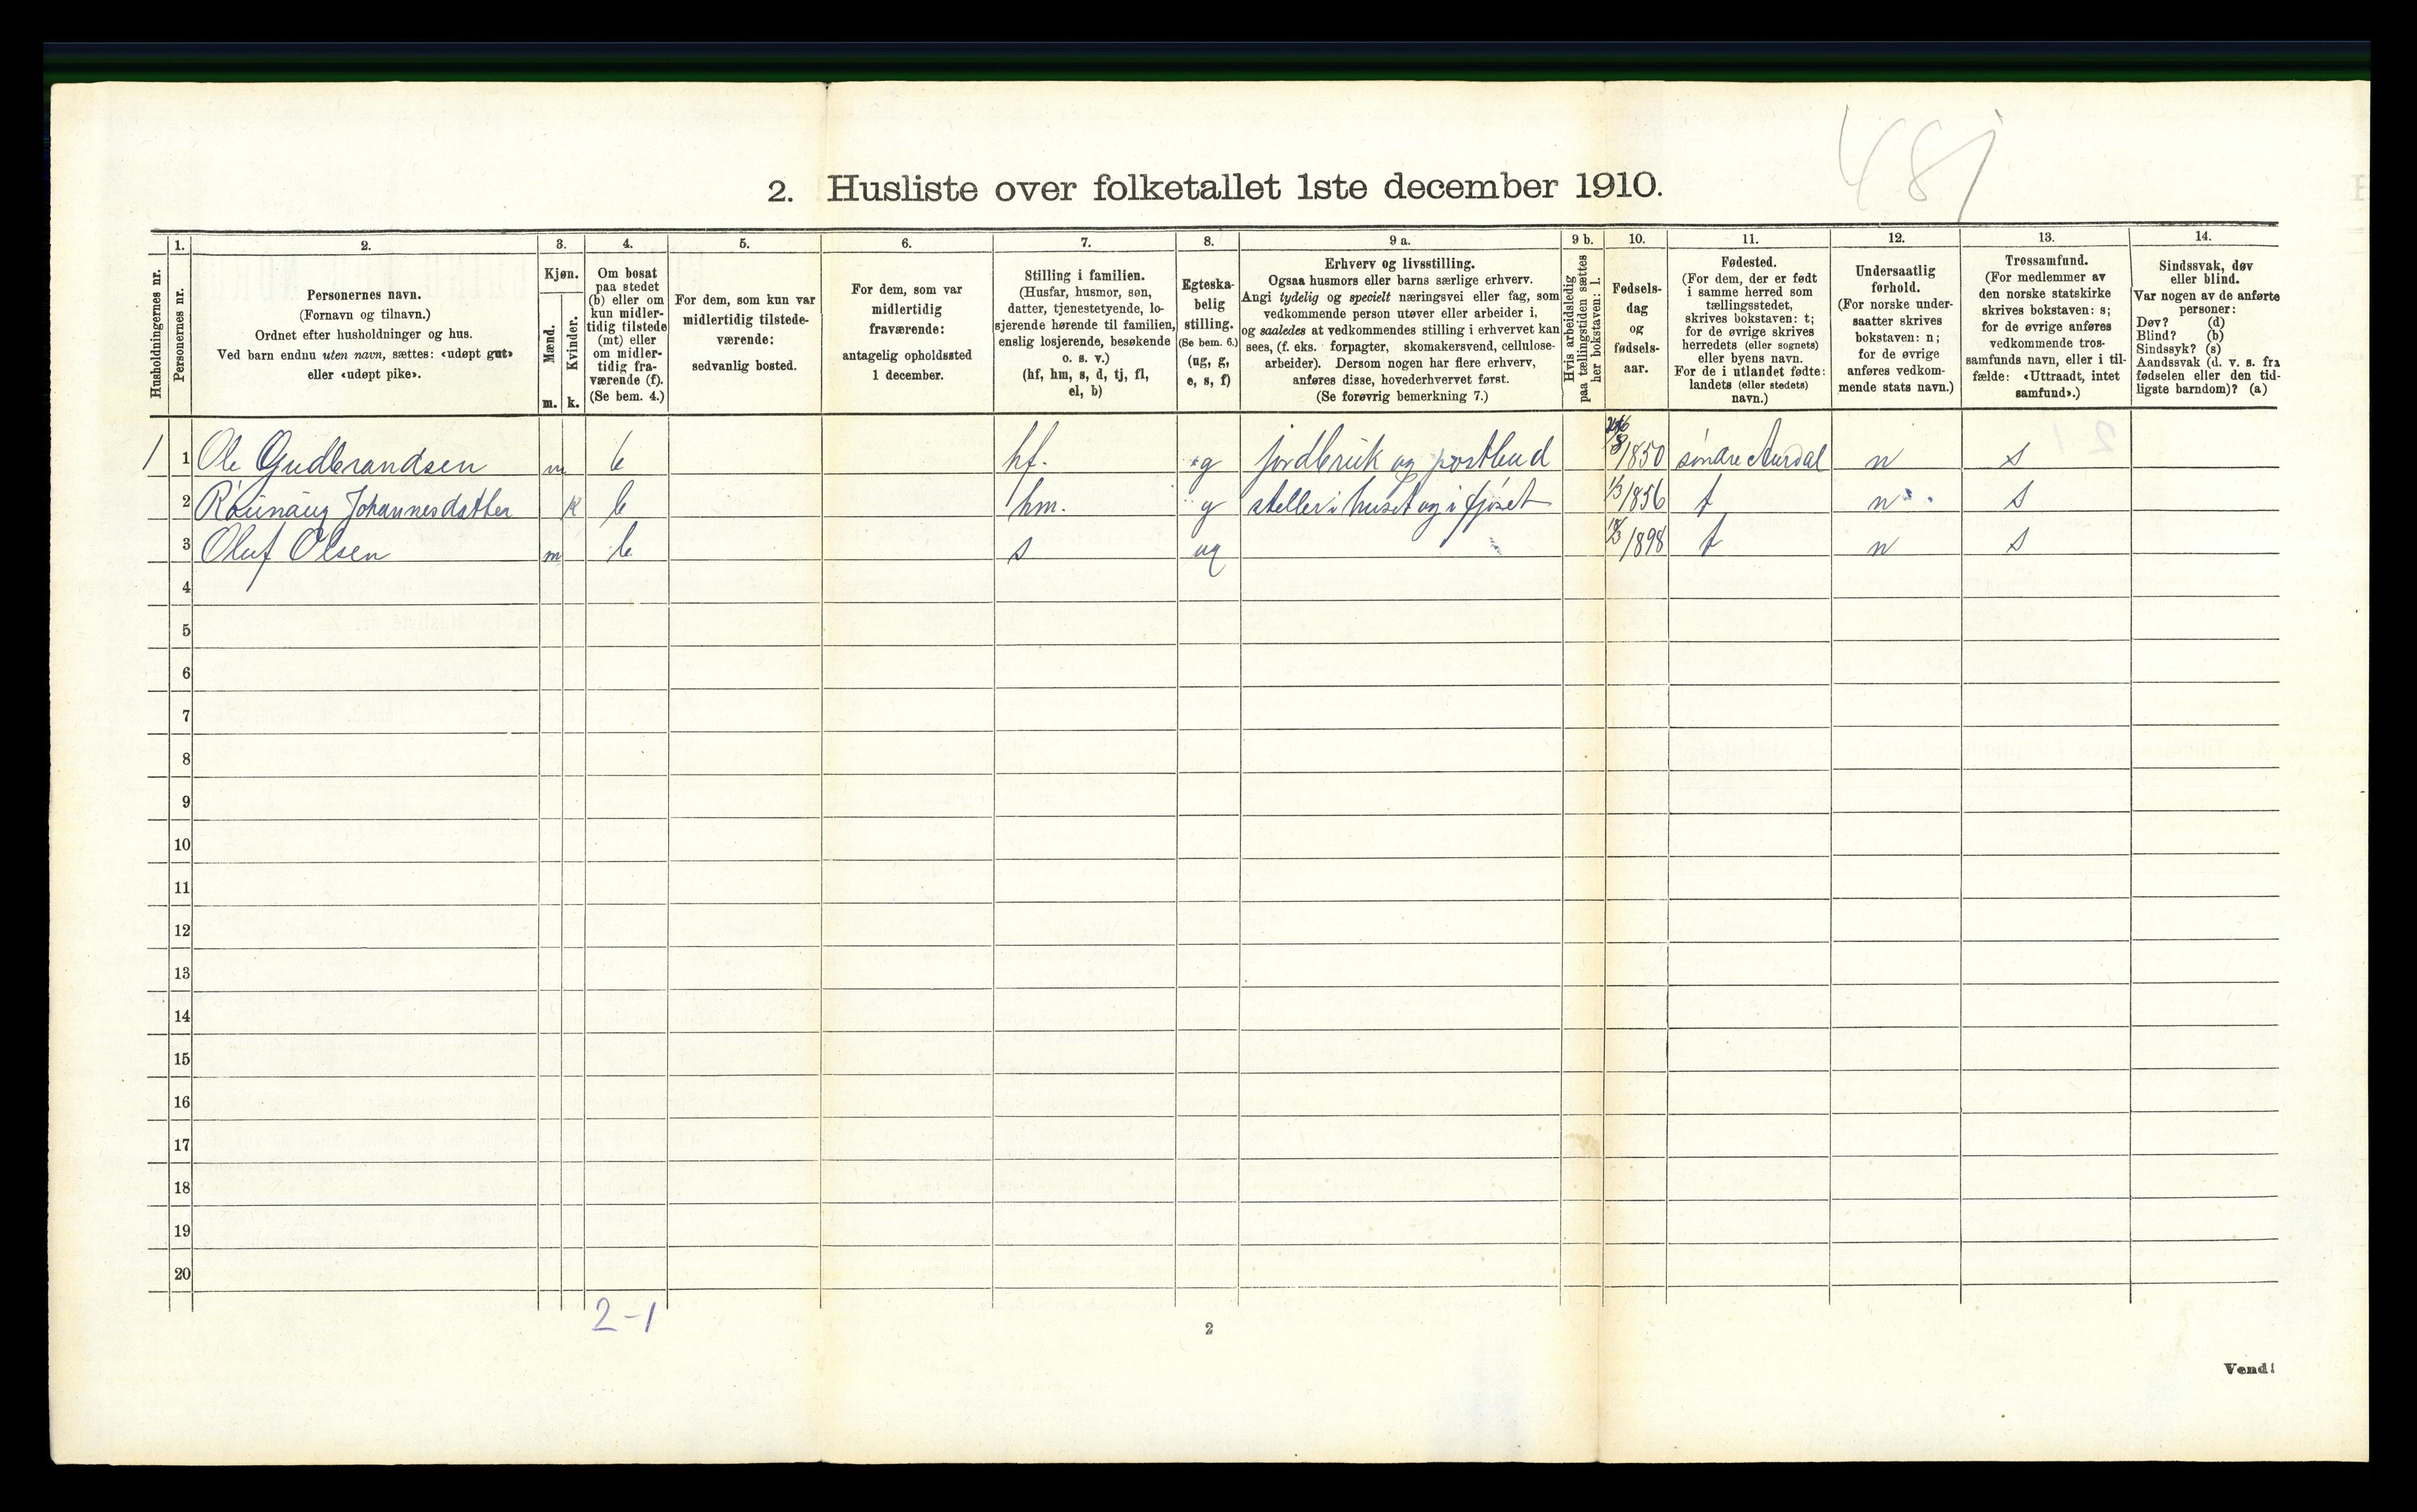 481
2. Husliste over folketallet 1ste december 1910.
Husholdningernes nr.
1.
Personernes nr.
2.
Personernes navn.
(Fornavn og tilnavn.)
Ordnet efter husholdninger og hus.
Ved barn endnu uten navn, sættes: «udøpt gut»
eller «udøpt pike».
3.
Kjøn.
Mænd.
Kvinder.
m. k.
4.
Om bosat
paa stedet
(b) eller om
kun midler-
tidig tilstede
(mt) eller
om midler-
tidig fra-
værende (f).
(Se bem. 4.)
5.
For dem, som kun var
midlertidig tilstede-
værende:
sedvanlig bosted.
6.
For dem, som var
midlertidig
fraværende:
antagelig opholdssted
1 december.
7.
Stilling i familien.
(Husfar, husmor, søn,
datter, tjenestetyende, lo-
sjerende hørende til familien,
enslig losjerende, besøkende
o. s. v.)
(hf, hm, s, d, tj, fl,
el, b)
8.
Egteska-
belig
stilling.
(Se bem. 6.)
(ug, g,
e, s, f)
9 a.
Erhverv og livsstilling.
Ogsaa husmors eller barns særlige erhverv.
Angi tydelig og specielt næringsvei eller fag, som
vedkommende person utøver eller arbeider i,
og saaledes at vedkommendes stilling i erhvervet kan
sees, (f. eks. forpagter, skomakersvend, cellulose-
arbeider). Dersom nogen har flere erhverv,
anføres disse, hovederhvervet først.
(Se forøvrig bemerkning 7.)
9 b.
Hvis arbeidsledig
paa tællingstiden sættes
her bokstaven: l.
10.
Fødsels-
dag
og
fødsels-
aar.
11.
Fødested.
(For dem, der er født
i samme herred som
tællingsstedet,
skrives bokstaven: t;
for de øvrige skrives
herredets (eller sognets)
eller byens navn.
For de i utlandet fødte:
landets (eller stedets)
navn.)
12.
Undersaatlig
forhold.
(For norske under-
saatter skrives
bokstaven: n;
for de øvrige
anføres vedkom-
mende stats navn.)
13.
Trossamfund.
(For medlemmer av
den norske statskirke
skrives bokstaven: s;
for de øvrige anføres
vedkommende tros-
samfunds navn, eller i til-
fælde: «Uttraadt, intet
samfund».)
14.
Sindssvak, døv
eller blind.
Var nogen av de anførte
personer:
Døv? (d)
Blind? (b)
Sindssyk? (s)
Aandssvak (d. v. s. fra
fødselen eller den tid-
ligste barndom)? (a)
1 1 Ole Gudbrandsen m b hf. g jordbruk og postbud 1850 søndre Aurdal n s
2 Johannesdatter k b hm. g steller i huset og i fjøset 1/3 1856 t n s
3 Oluf Olsen m b s ug 1898 t n s
4
5
6
7
8
9
10
11
12
13
14
15
16
17
18
19
20
2-1
2
Vend!